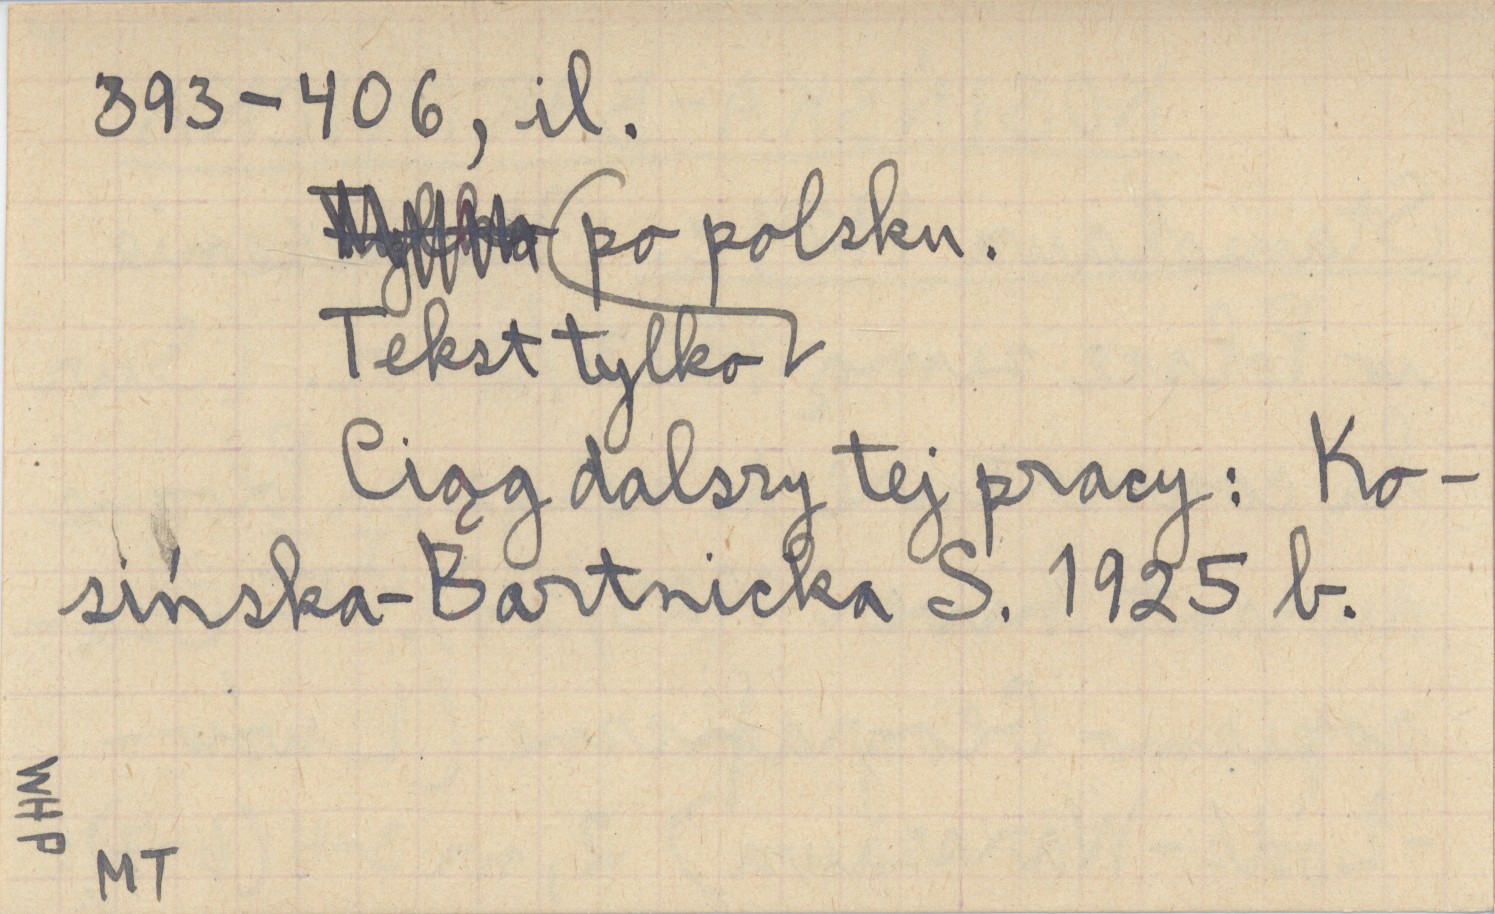 393-406, il.
po polsku.
Tekst tylko
Ciąg dalszy tej pracy: Ko-
sińska-Bartnicka S. 1925 b.
WHP
MT